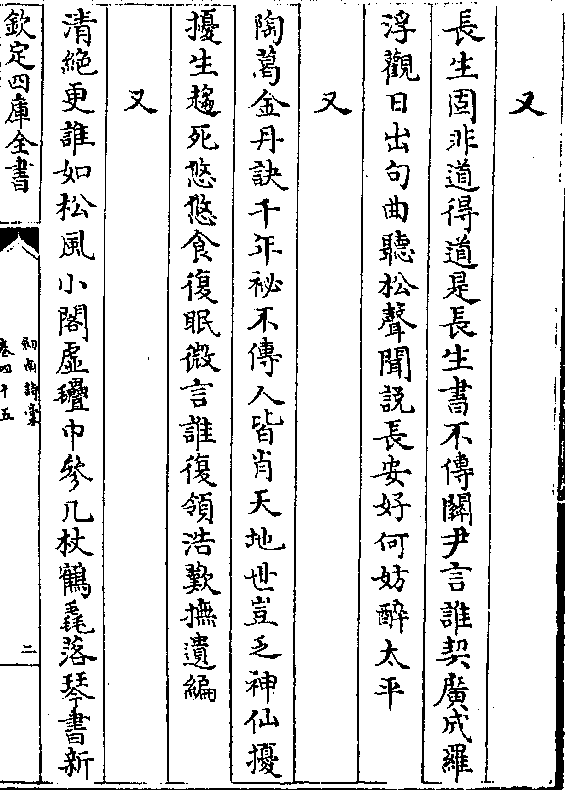 又
長生固非道得道是長生書不傳關尹言誰契廣成羅
浮觀日出句曲聽松聲聞説長安好何妨醉太平
又
陶葛金丹訣千年祕不傳人皆肖天地世豈乏神仙擾
擾生趨死悠悠食復眠微言誰復領浩歎撫遺編
又
清絶更誰如松風小閣虛疊巾參几杖鶴毳落琴書新
欽定四庫全書
劒南詩藁
卷四十五
二